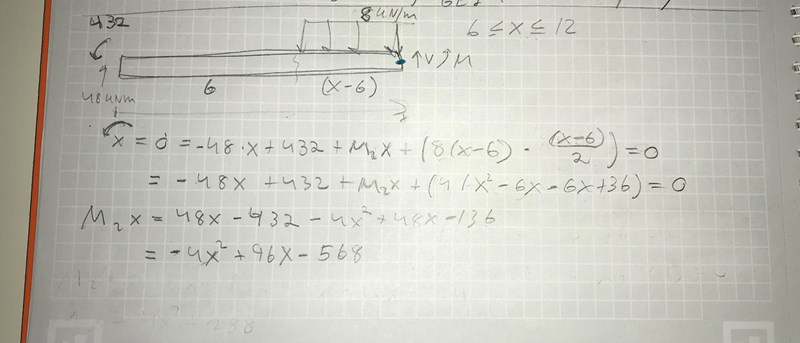 432
8 kN/m
6 ≤ x ≤ 12
↑V M
6
(x-6)
48 kNm
x = 0 = -48·x + 432 + M₂x + (8(x-6) · (x-6)/2) = 0
= -48x + 432 + M₂x + (4(x² - 6x - 6x + 36) = 0
M₂x = 48x - 432 - 4x² + 48x - 136
= -4x² + 96x - 568